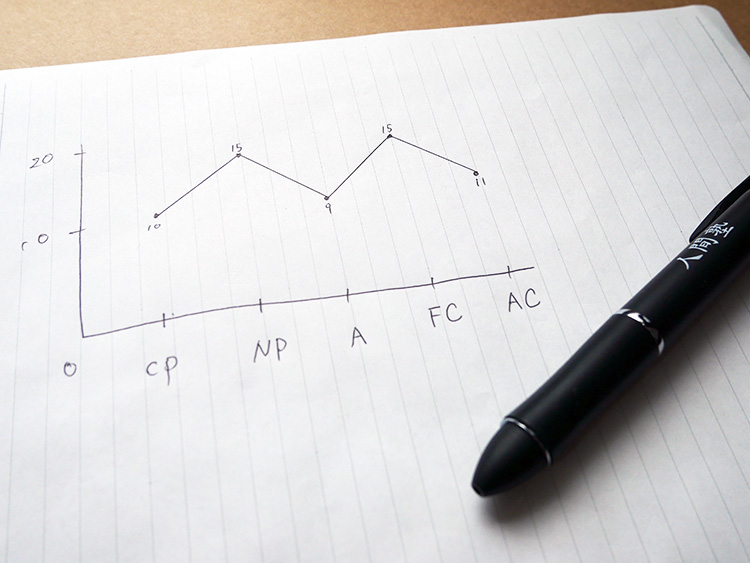 20
15
15
10
9
11
10
0
CP
NP
A
FC
AC
人間塾